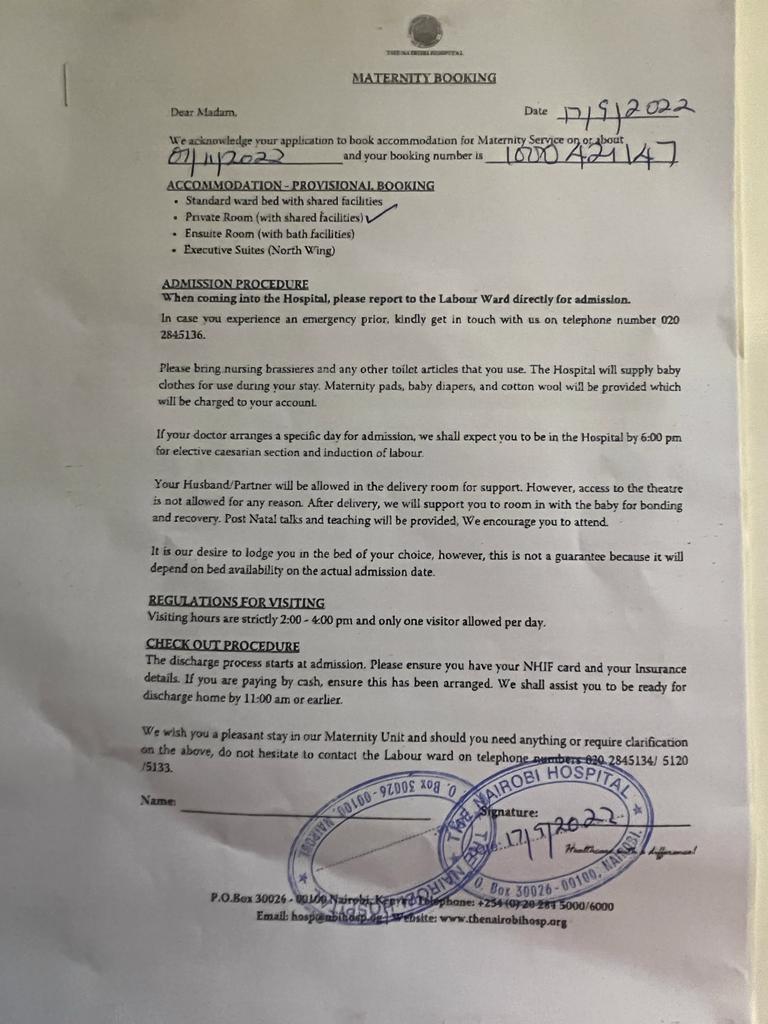 THE NAIROBI HOSPITAL
MATERNITY BOOKING
Dear Madam,
Date 17/9/2022
We acknowledge your application to book accommodation for Maternity Service on or about
07/11/2022 and your booking number is
ACCOMMODATION - PROVISIONAL BOOKING
• Standard ward bed with shared facilities
• Private Room (with shared facilities) ✓
• Ensuite Room (with bath facilities)
• Executive Suites (North Wing)
ADMISSION PROCEDURE
When coming into the Hospital, please report to the Labour Ward directly for admission.
In case you experience an emergency prior, kindly get in touch with us on telephone number 020
2845136.
Please bring nursing brassieres and any other toilet articles that you use. The Hospital will supply baby
clothes for use during your stay. Maternity pads, baby diapers, and cotton wool will be provided which
will be charged to your account.
If your doctor arranges a specific day for admission, we shall expect you to be in the Hospital by 6:00 pm
for elective caesarian section and induction of labour.
Your Husband/Partner will be allowed in the delivery room for support. However, access to the theatre
is not allowed for any reason. After delivery, we will support you to room in with the baby for bonding
and recovery. Post Natal talks and teaching will be provided, We encourage you to attend.
It is our desire to lodge you in the bed of your choice, however, this is not a guarantee because it will
depend on bed availability on the actual admission date.
REGULATIONS FOR VISITING
Visiting hours are strictly 2:00 - 4:00 pm and only one visitor allowed per day.
CHECK OUT PROCEDURE
The discharge process starts at admission. Please ensure you have your NHIF card and your Insurance
details. If you are paying by cash, ensure this has been arranged. We shall assist you to be ready for
discharge home by 11:00 am or earlier.
We wish you a pleasant stay in our Maternity Unit and should you need anything or require clarification
on the above, do not hesitate to contact the Labour ward on telephone numbers 020 2845134/ 5120
/5133.
Name:
Signature:
THE NAIROBI HOSPITAL
17/9/2022
O. Box 30026-00100, NAIROBI.
THE NAIROBI HOSPITAL
O. Box 30026-00100, NAIROBI.
P.O.Box 30026 - 00100 Nairobi, Kenya Telephone: +254 (0) 20 284 5000/6000
Email: hosp@nbihosp.org | Website: www.thenairobihosp.org